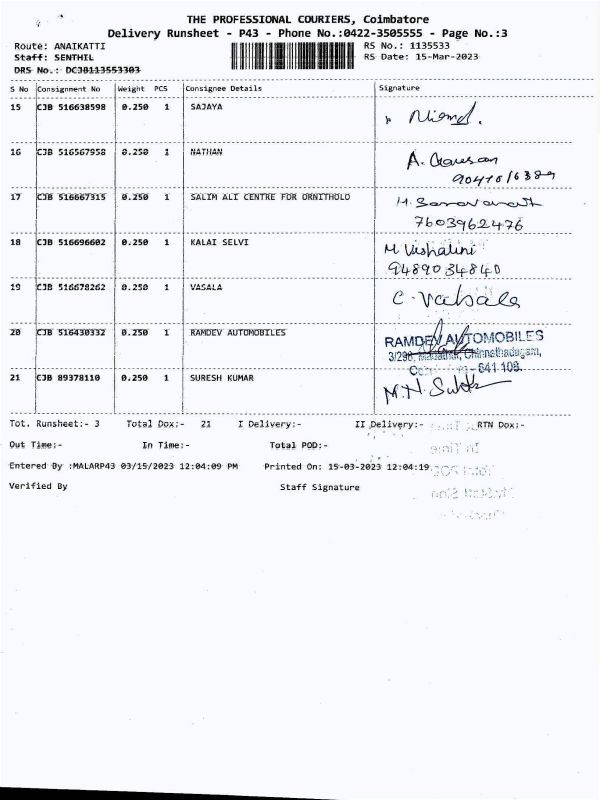 THE PROFESSIONAL COURIERS, Coimbatore
Delivery Runsheet - P43 - Phone No.:0422-3505555 - Page No.:3
Route: ANAIKATTI RS No.: 1135533
Staff: SENTHIL RS Date: 15-Mar-2023
DRS No.: DCJB113553303
S No Consignment No Weight PCS Consignee Details Signature
15 CJB 516638598 0.250 1 SAJAYA
16 CJB 516567958 0.250 1 NATHAN
17 CJB 516667315 0.250 1 SALIM ALI CENTRE FOR ORNITHOLO
7603962476
18 CJB 516696602 0.250 1 KALAI SELVI M Vishalini
9489034840
19 CJB 516678262 0.250 1 VASALA C. Vatsala
20 CJB 516430332 0.250 1 RAMDEV AUTOMOBILES RAMDEV AUTOMOBILES
- 641 108.
21 CJB 89378110 0.250 1 SURESH KUMAR
Tot. Runsheet:- 3 Total Dox:- 21 I Delivery:- II Delivery:- RTN Dox:-
Out Time:- In Time:- Total POD:-
Entered By :MALARP43 03/15/2023 12:04:09 PM Printed On: 15-03-2023 12:04:19
Verified By Staff Signature